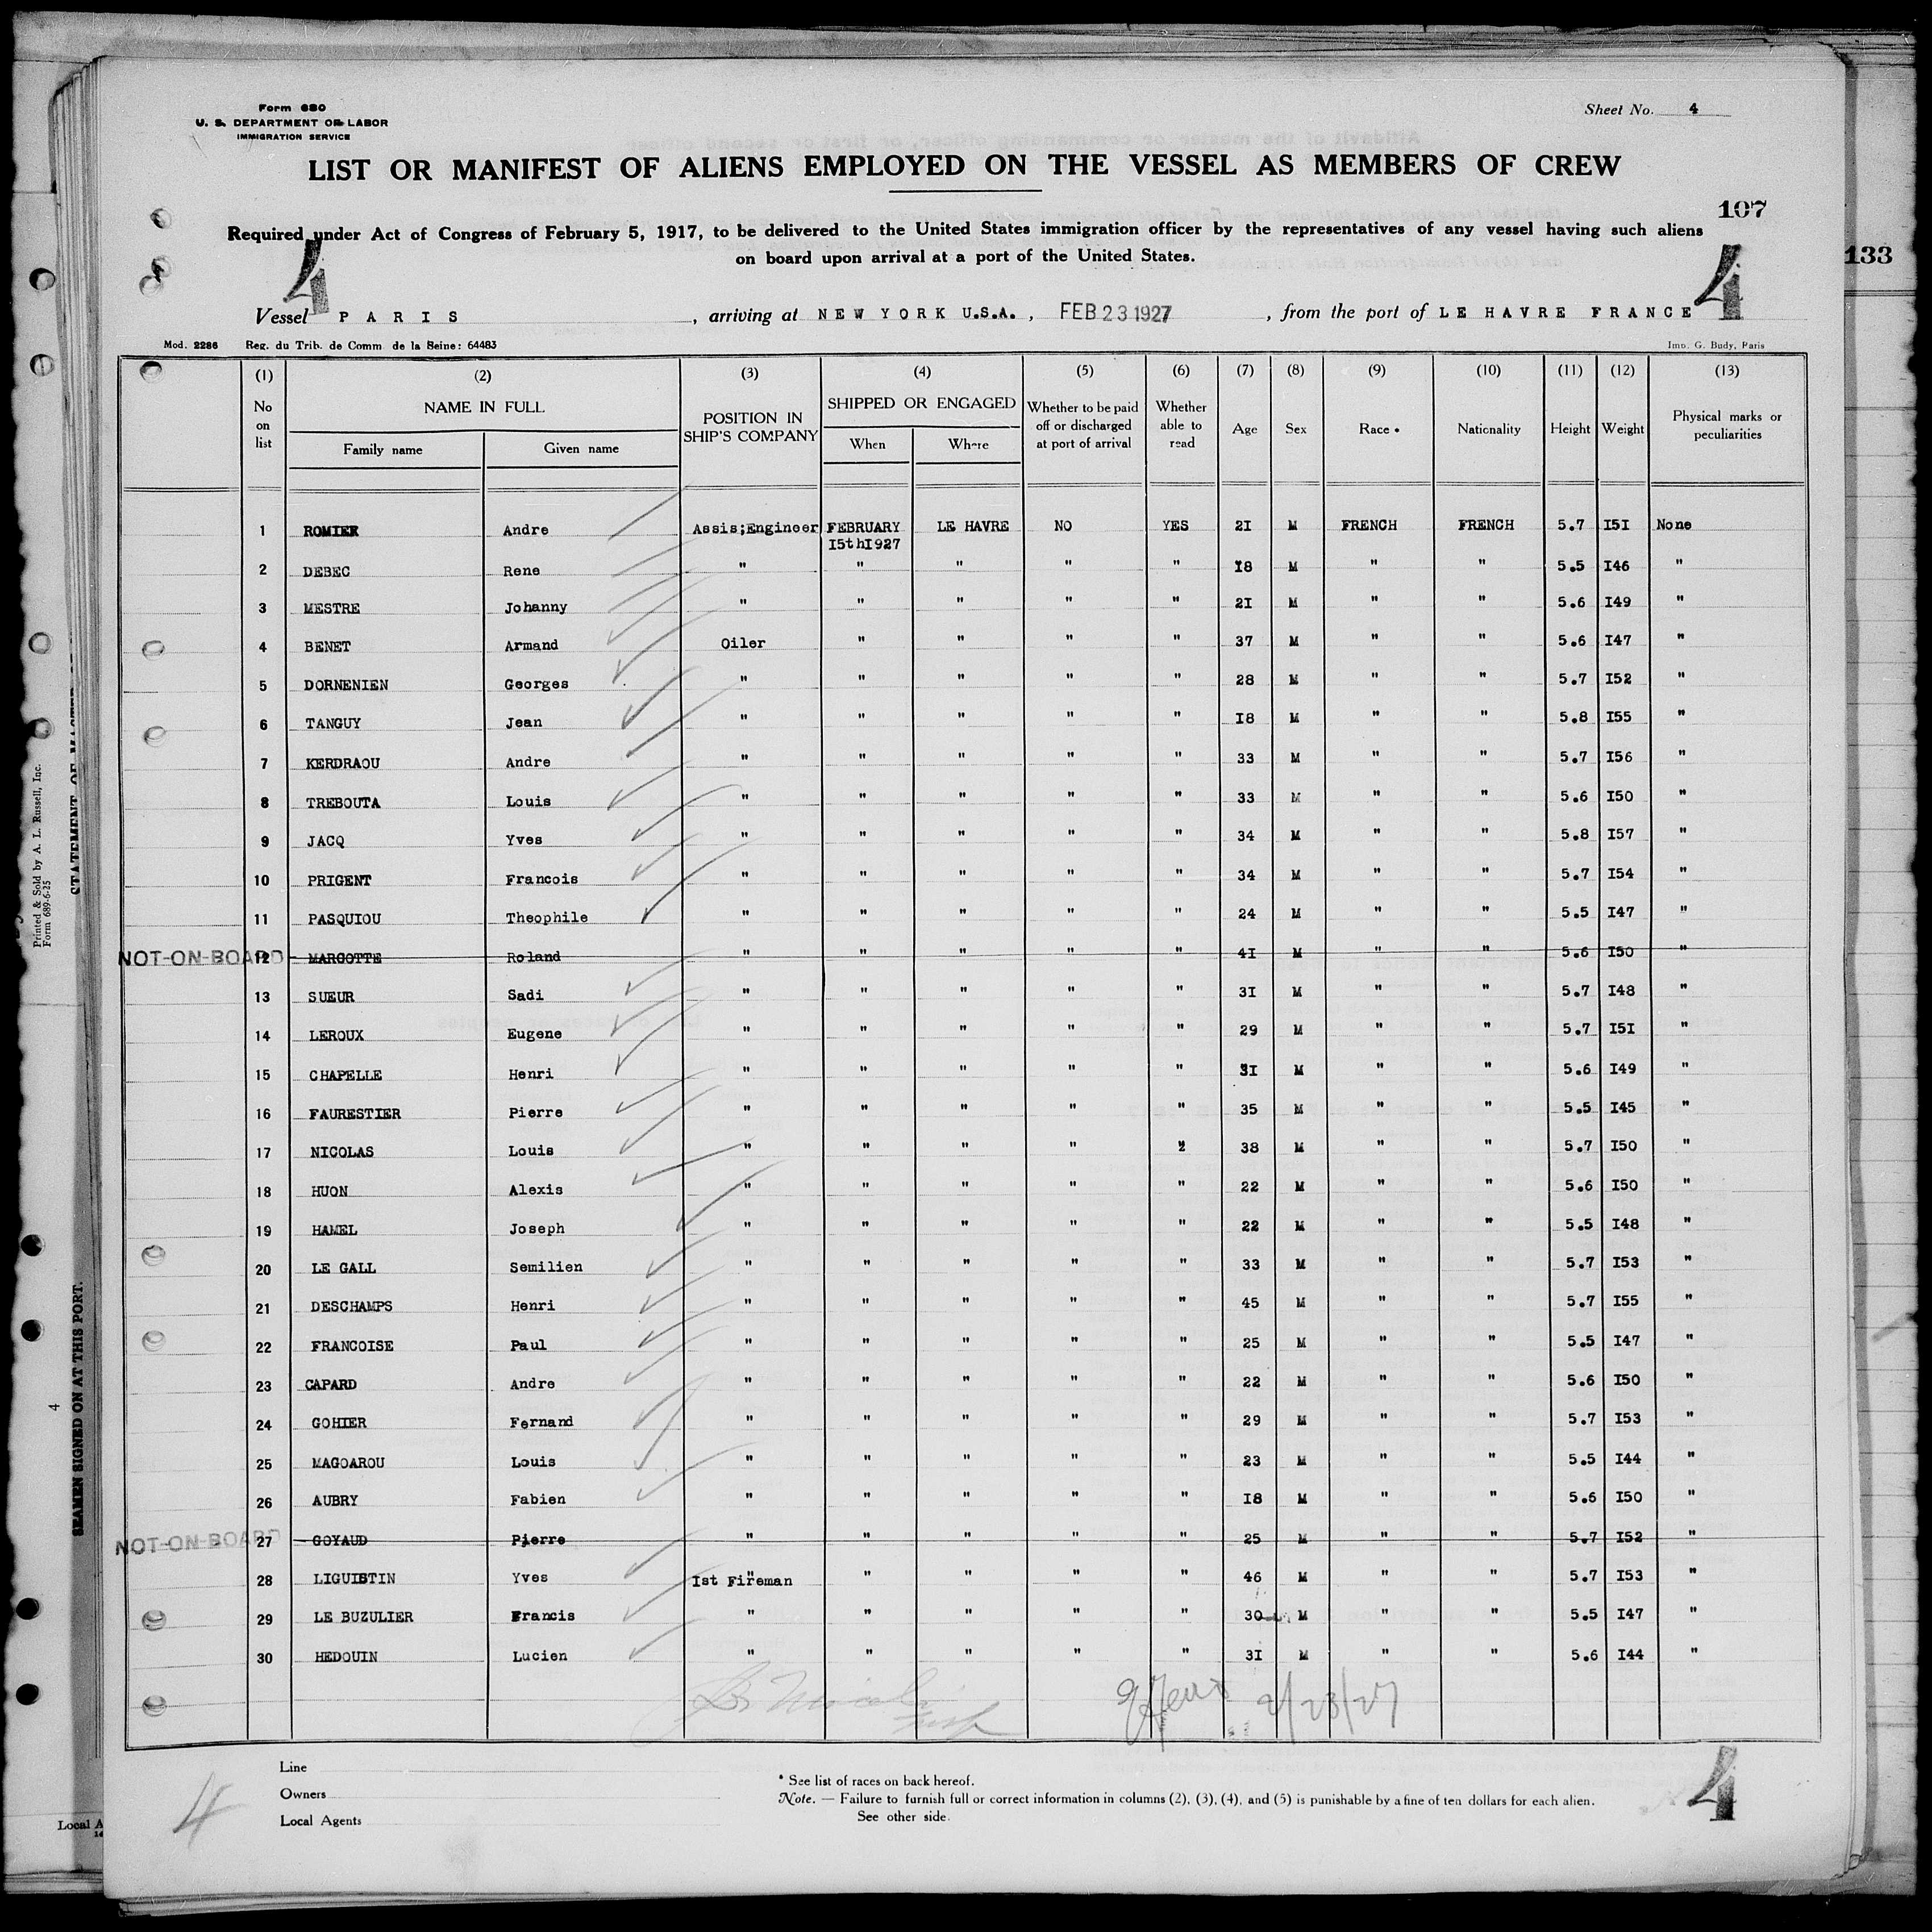 Form 680
U. S. DEPARTMENT OF LABOR
IMMIGRATION SERVICE
Sheet No. 4
LIST OR MANIFEST OF ALIENS EMPLOYED ON THE VESSEL AS MEMBERS OF CREW
107
133
Required under Act of Congress of February 5, 1917, to be delivered to the United States immigration officer by the representatives of any vessel having such aliens
on board upon arrival at a port of the United States.
4 4
Vessel PARIS, arriving at NEW YORK U.S.A., FEB 23 1927, from the port of LE HAVRE FRANCE
Mod. 2286 Reg. du Trib. de Comm. de la Seine: 64483 Imp. G. Budy, Paris
(1) (2) (3) (4) (5) (6) (7) (8) (9) (10) (11) (12) (13)
No on list NAME IN FULL Family name Given name POSITION IN SHIP'S COMPANY SHIPPED OR ENGAGED When Where Whether to be paid off or discharged at port of arrival Whether able to read Age Sex Race * Nationality Height Weight Physical marks or peculiarities
1 ROMIER Andre Assis;Engineer FEBRUARY I5thI927 LE HAVRE NO YES 2I M FRENCH FRENCH 5.7 I5I None
2 DEBEC Rene " " " " " I8 M " " 5.5 I46 "
3 MESTRE Johanny " " " " " 2I M " " 5.6 I49 "
4 BENET Armand Oiler " " " " 37 M " " 5.6 I47 "
5 DORNENIEN Georges " " " " " 28 M " " 5.7 I52 "
6 TANGUY Jean " " " " " I8 M " " 5.8 I55 "
7 KERDRAOU Andre " " " " " 33 M " " 5.7 I56 "
8 TREBOUTA Louis " " " " " 33 M " " 5.6 I50 "
9 JACQ Yves " " " " " 34 M " " 5.8 I57 "
10 PRIGENT Francois " " " " " 34 M " " 5.7 I54 "
11 PASQUIOU Theophile " " " " " 24 M " " 5.5 I47 "
NOT-ON-BOARD 12 MARGOTTE Roland " " " " " 4I M " " 5.6 I50 "
13 SUEUR Sadi " " " " " 3I M " " 5.7 I48 "
14 LEROUX Eugene " " " " " 29 M " " 5.7 I5I "
15 CHAPELLE Henri " " " " " 3I M " " 5.6 I49 "
16 FAURESTIER Pierre " " " " " 35 M " " 5.5 I45 "
17 NICOLAS Louis " " " " 2 38 M " " 5.7 I50 "
18 HUON Alexis " " " " " 22 M " " 5.6 I50 "
19 HAMEL Joseph " " " " " 22 M " " 5.5 I48 "
20 LE GALL Semilien " " " " " 33 M " " 5.7 I53 "
21 DESCHAMPS Henri " " " " " 45 M " " 5.7 I55 "
22 FRANCOISE Paul " " " " " 25 M " " 5.5 I47 "
23 CAPARD Andre " " " " " 22 M " " 5.6 I50 "
24 GOHIER Fernand " " " " " 29 M " " 5.7 I53 "
25 MAGOAROU Louis " " " " " 23 M " " 5.5 I44 "
26 AUBRY Fabien " " " " " I8 M " " 5.6 I50 "
NOT-ON-BOARD 27 GOYAUD Pierre " " " " " 25 M " " 5.7 I52 "
28 LIGUISTIN Yves Ist Fireman " " " " 46 M " " 5.7 I53 "
29 LE BUZULIER Francis " " " " " 30 M " " 5.5 I47 "
30 HEDOUIN Lucien " " " " " 3I M " " 5.6 I44 "
2/23/27
Line
Owners
Local Agents
* See list of races on back hereof.
Note. — Failure to furnish full or correct information in columns (2), (3), (4), and (5) is punishable by a fine of ten dollars for each alien.
See other side.
4 4
Printed & Sold by A. L. Russell, Inc.
Form 689-6-25
4
SEAMEN SIGNED ON AT THIS PORT.
Local A